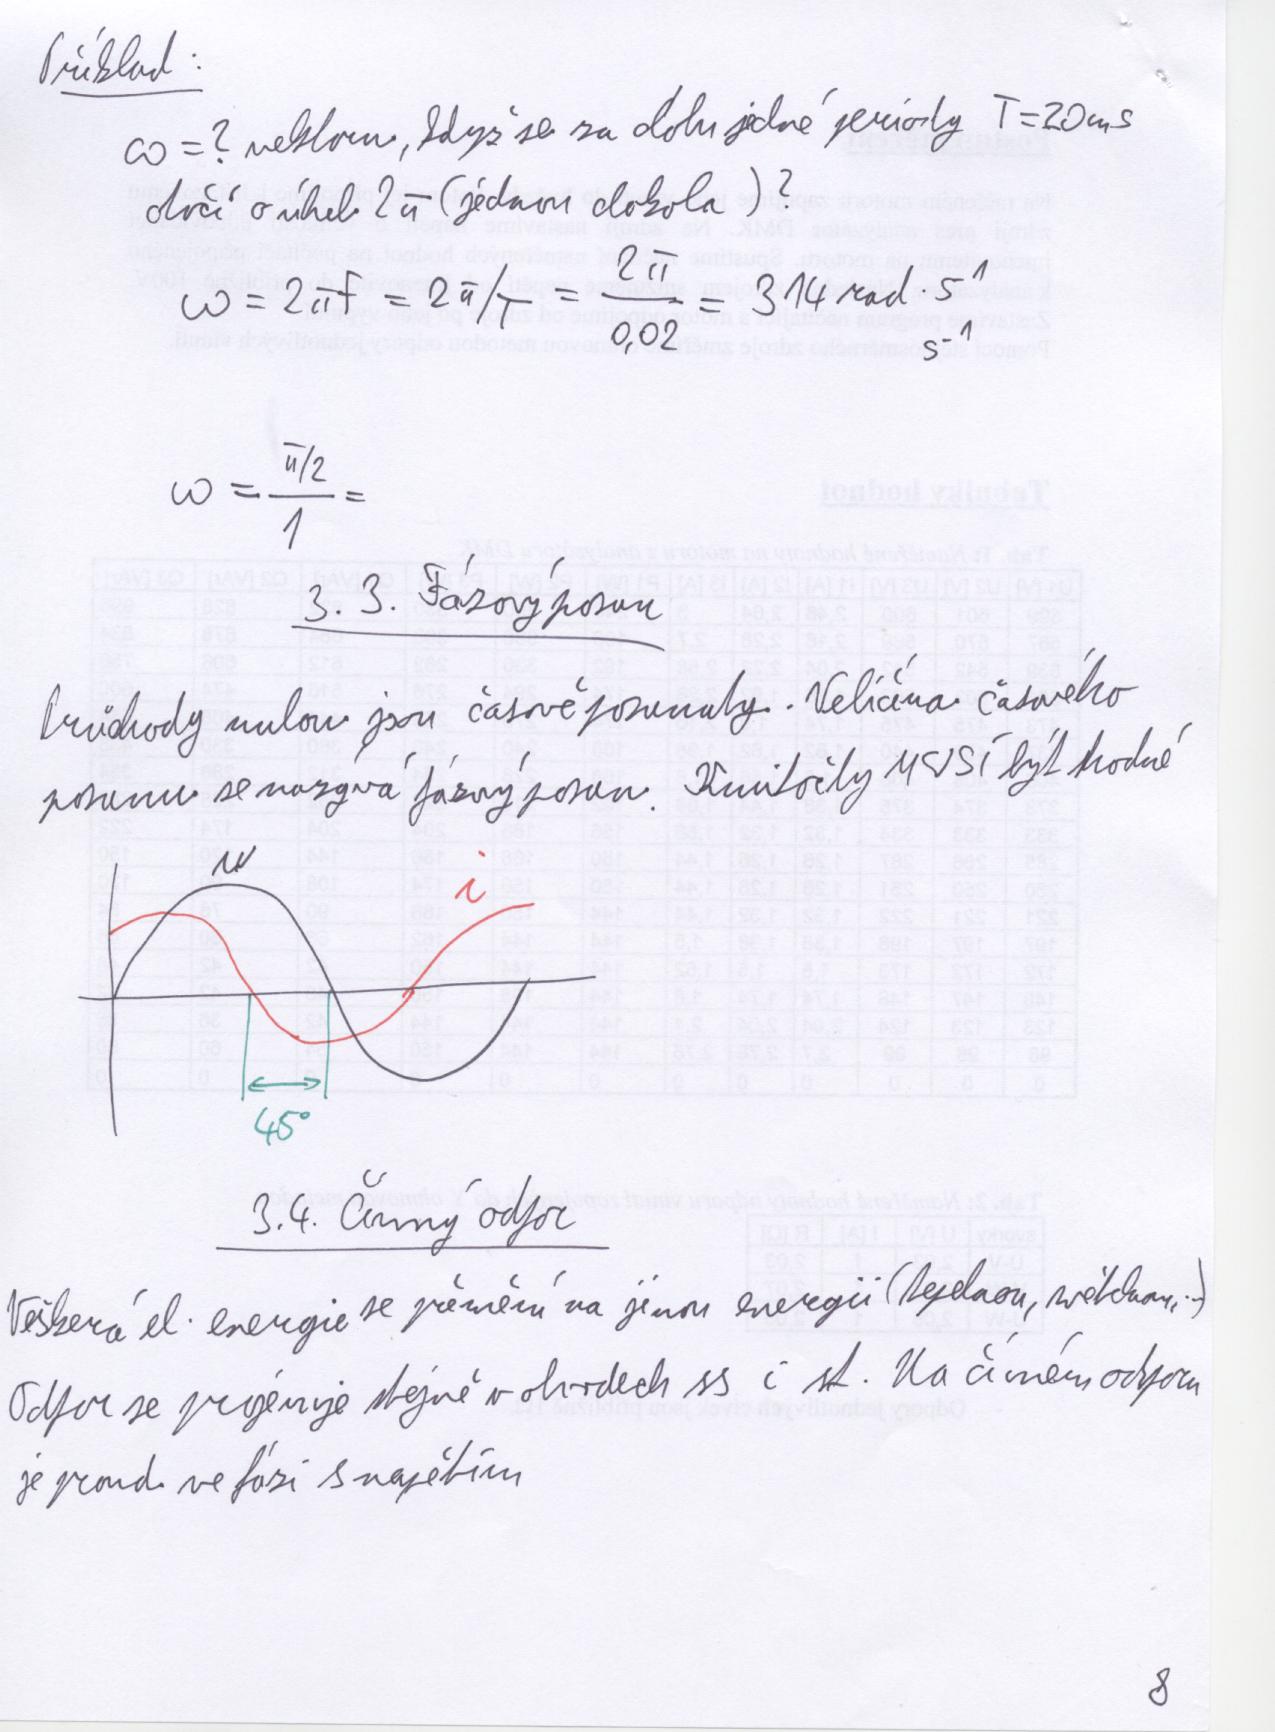 Příklad:
ω = ? vektoru, když se za dobu jedné periody T = 20 ms
otočí o úhel 2π (jednou dokola)?
ω = 2πf = 2π/T = 2π/0,02 = 314 rad s⁻¹
s⁻¹
ω = π/2 / 1 =
3.3. Fázový posun
Průchody nulou jsou časově posunuty. Veličina časového
posunu se nazývá fázový posun. Kmitočty MUSÍ být shodné
u
i
45°
3.4. Činný odpor
Veškerá el. energie se přemění na jinou energii (tepelnou, světelnou,..)
Odpor se projevuje stejně v obvodech ss i st. Na činném odporu
je proud ve fázi s napětím
8